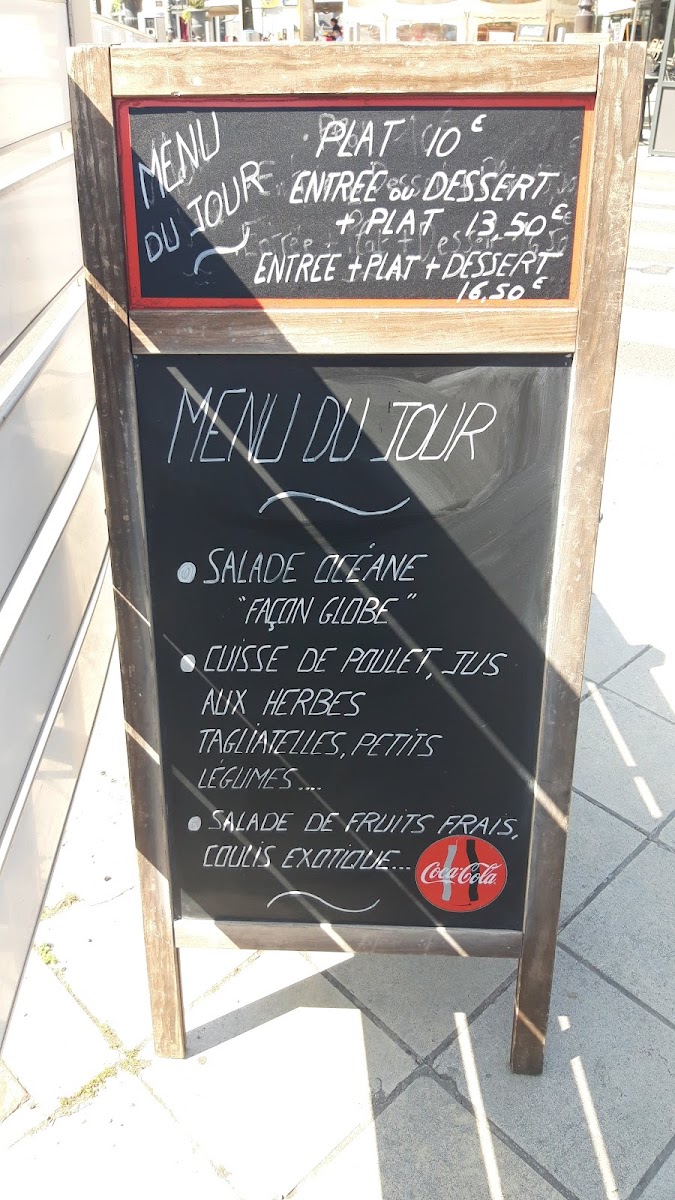 MENU
DU JOUR
PLAT 10€
ENTREE ou DESSERT
+ PLAT 13,50€
ENTREE + PLAT + DESSERT
16,50€
MENU DU JOUR
SALADE OCÉANE
"FAÇON GLOBE"
CUISSE DE POULET, JUS
AUX HERBES
TAGLIATELLES, PETITS
LÉGUMES....
SALADE DE FRUITS FRAIS,
COULIS EXOTIQUE...
Coca-Cola